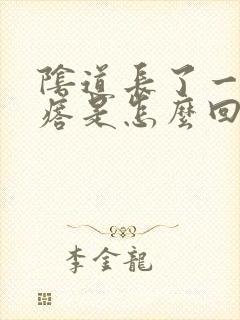 陰道長了一
痞是怎麼回
李金龍